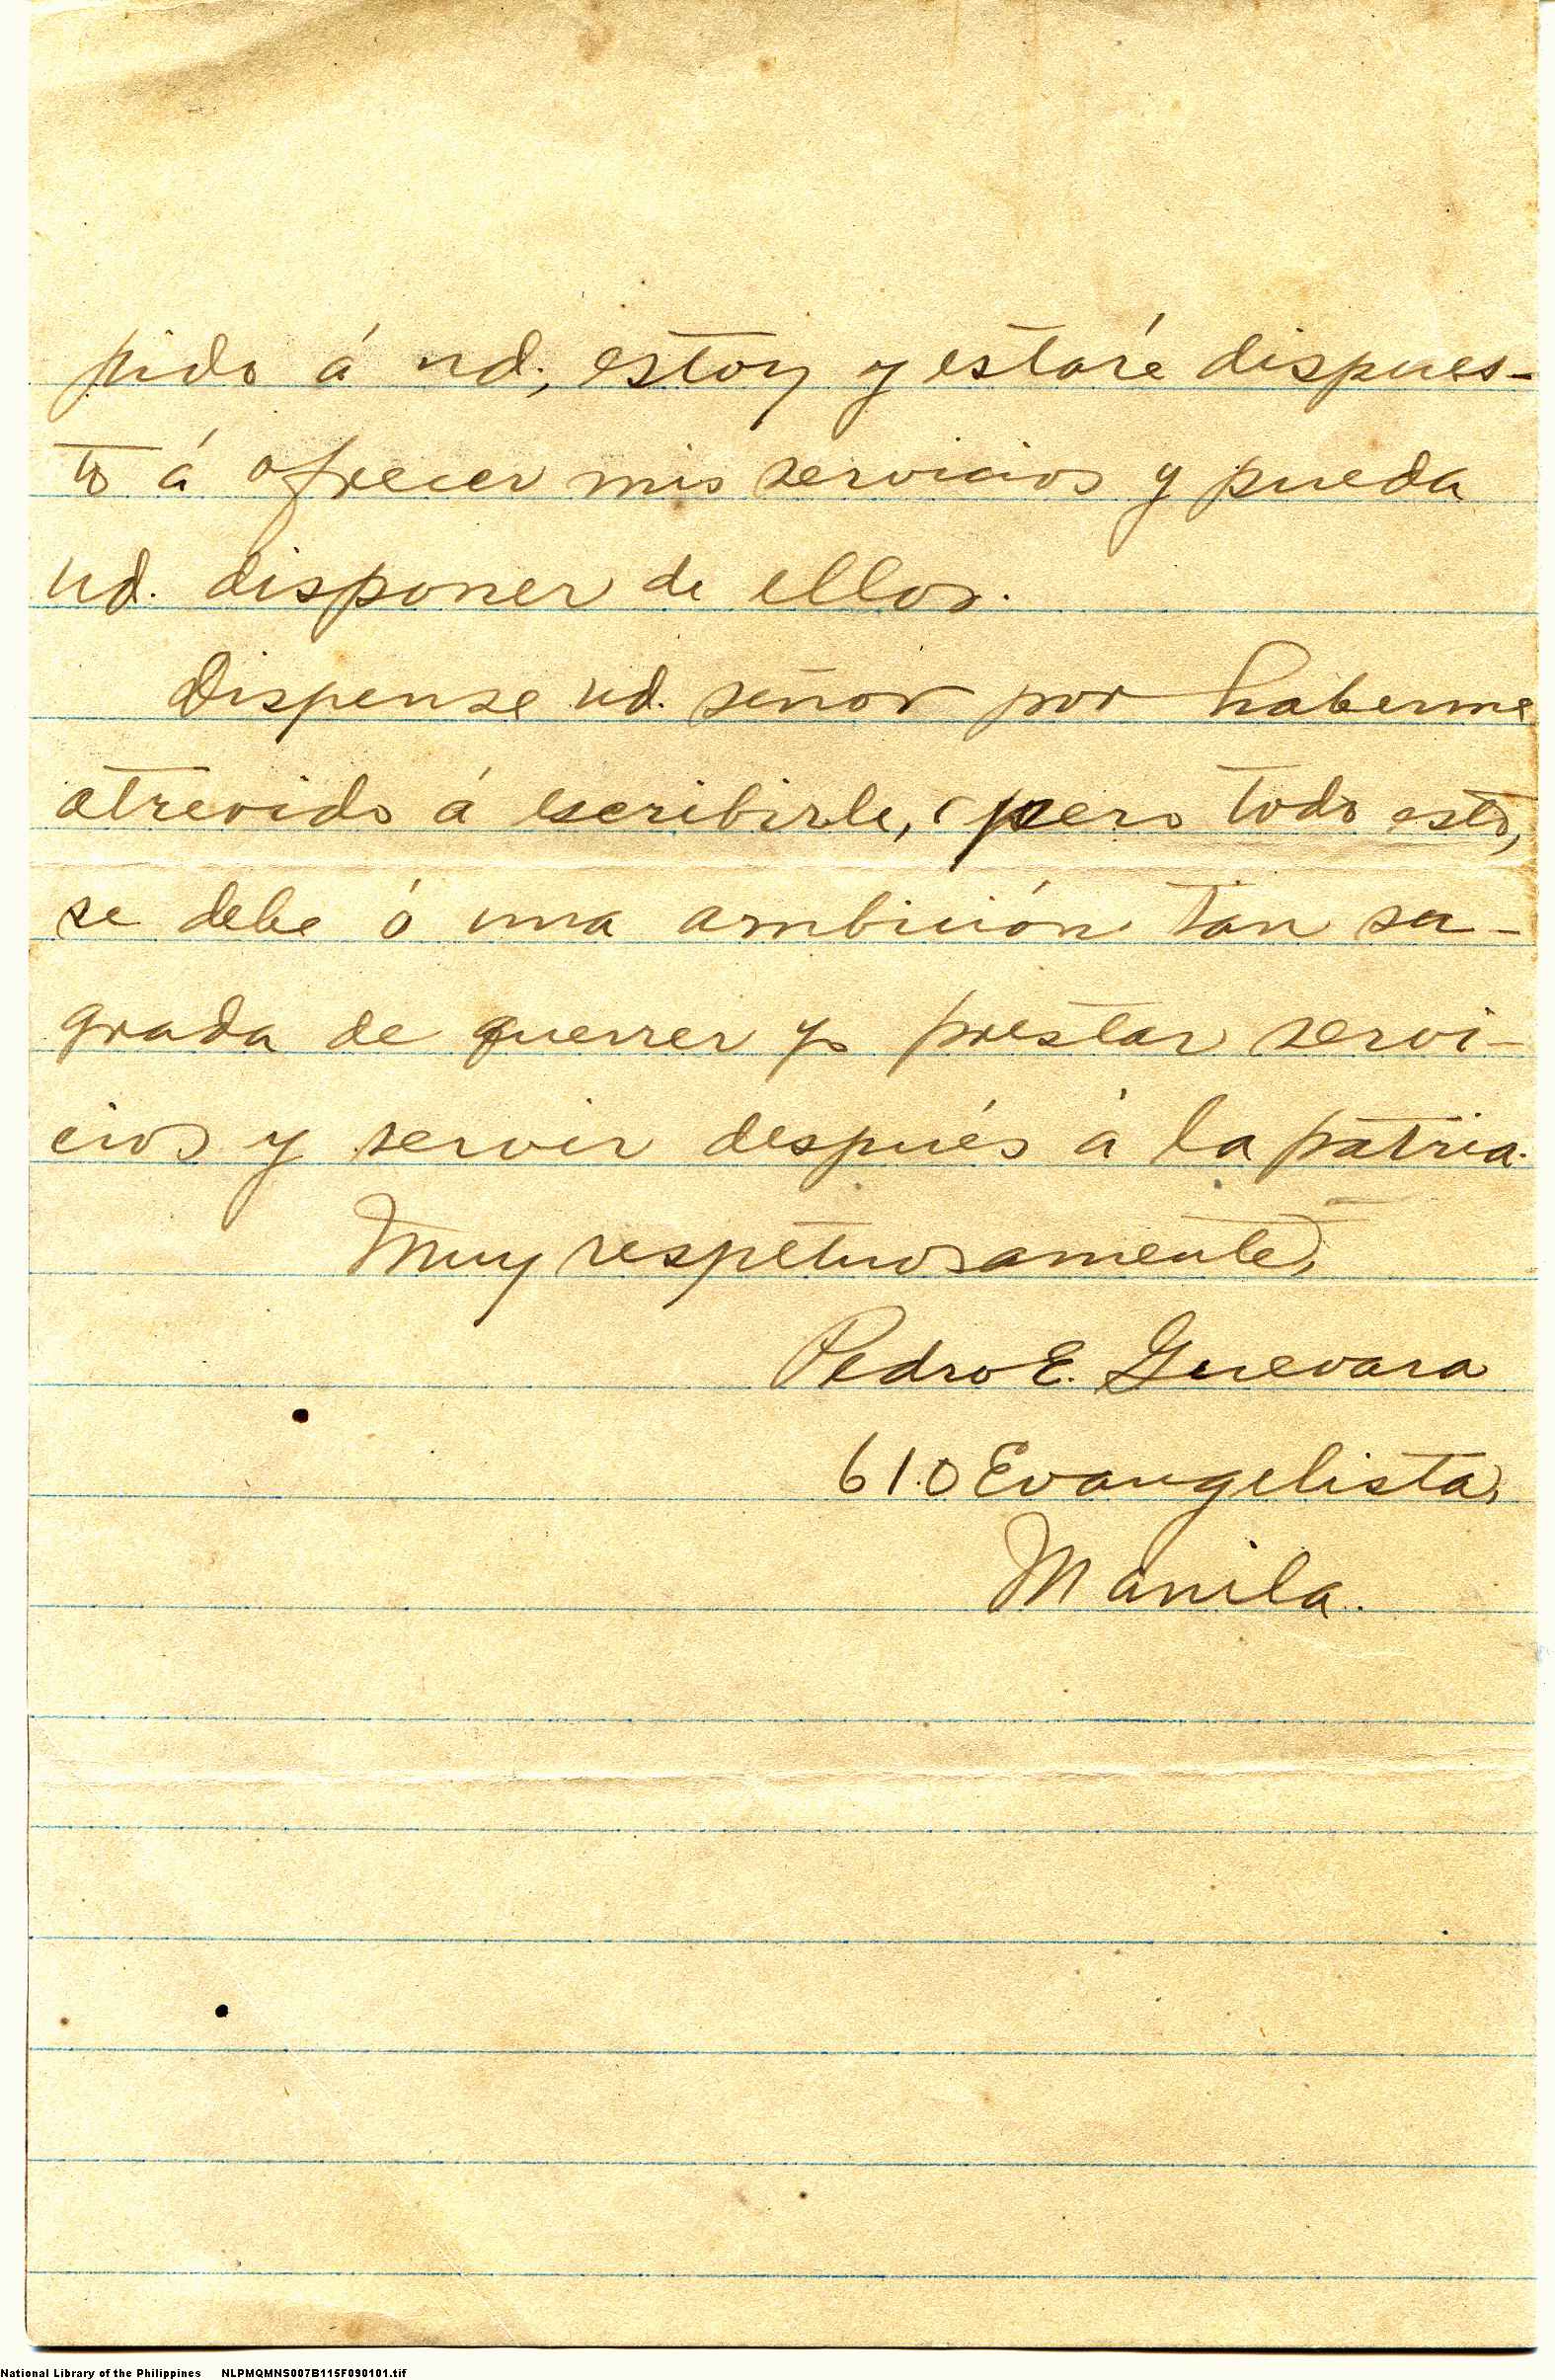 pido á ud., estoy y estaré dispues-
to á ofrecer mis servicios y pueda
ud. disponer de ellos.
Dispense ud. señor por haberme
atrevido á escribirle, pero todo esto,
se debe á una ambición tan sa-
grada de querrer yo prestar servi-
cios y servir después á la patria.
Muy respetuosamente,
Pedro E. Guevara
610 Evangelista,
Manila.
National Library of the Philippines NLPMQMNS007B115F090101.tif